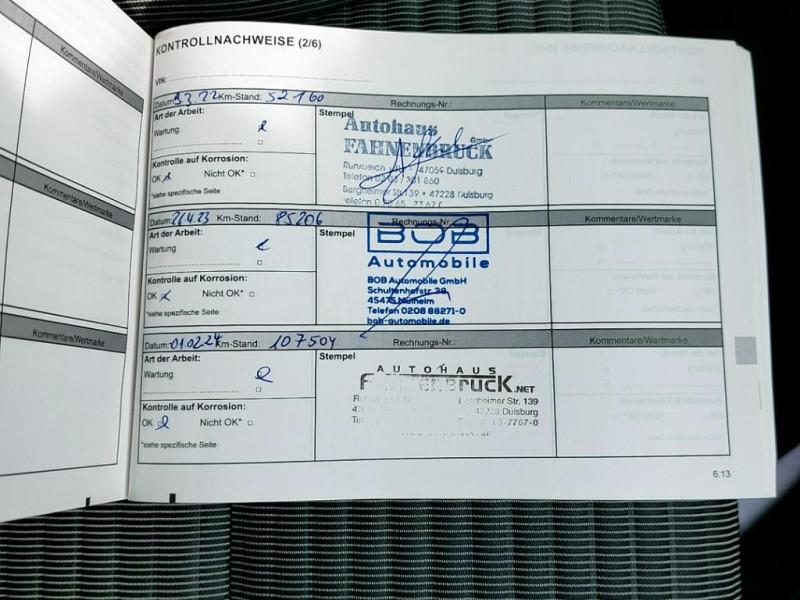 Kommentare/Wertmarke
Kommentare/Wertmarke
Kommentare/Wertmarke
KONTROLLNACHWEISE (2/6)
VIN:
Datum: 9.3.22 Km-Stand: 52160 Rechnungs-Nr.: Kommentare/Wertmarke
Art der Arbeit:
Wartung
Kontrolle auf Korrosion:
OK Nicht OK*
*siehe spezifische Seite
Stempel
Autohaus GmbH
FAHNENBRUCK
47059 Duisburg
Telefon
Bergheimer Str. 139 • 47228 Duisburg
Telefon
Datum: 21.4.23 Km-Stand: 85206 Rechnungs-Nr.: Kommentare/Wertmarke
Art der Arbeit:
Wartung
Kontrolle auf Korrosion:
OK Nicht OK*
*siehe spezifische Seite
Stempel
BOB
Automobile
BOB Automobile GmbH
Schultenhofstr. 38
45475 Mülheim
Telefon 0208 88271-0
bob-automobile.de
Datum: 01.02.24 Km-Stand: 107504 Rechnungs-Nr.: Kommentare/Wertmarke
Art der Arbeit:
Wartung
Kontrolle auf Korrosion:
OK Nicht OK*
*siehe spezifische Seite
Stempel
AUTOHAUS
.NET
Bergheimer Str. 139
47228 Duisburg
6.13